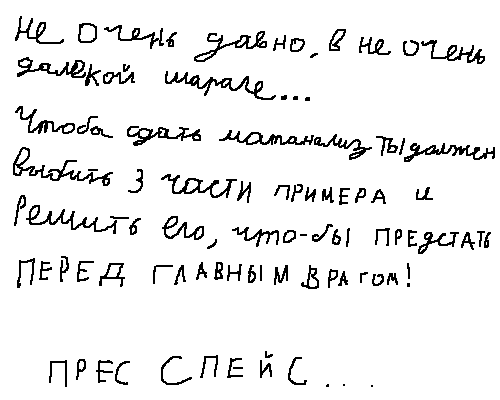 Не очень давно, в не очень
далекой шараге...
Чтоба сдать матанализ ты должен
выбить 3 части ПРИМЕРА и
Решить его, что-бы ПРЕДСТАТЬ
ПЕРЕД ГЛАВНЫМ ВРАГОМ!
ПРЕС СПЕЙС....